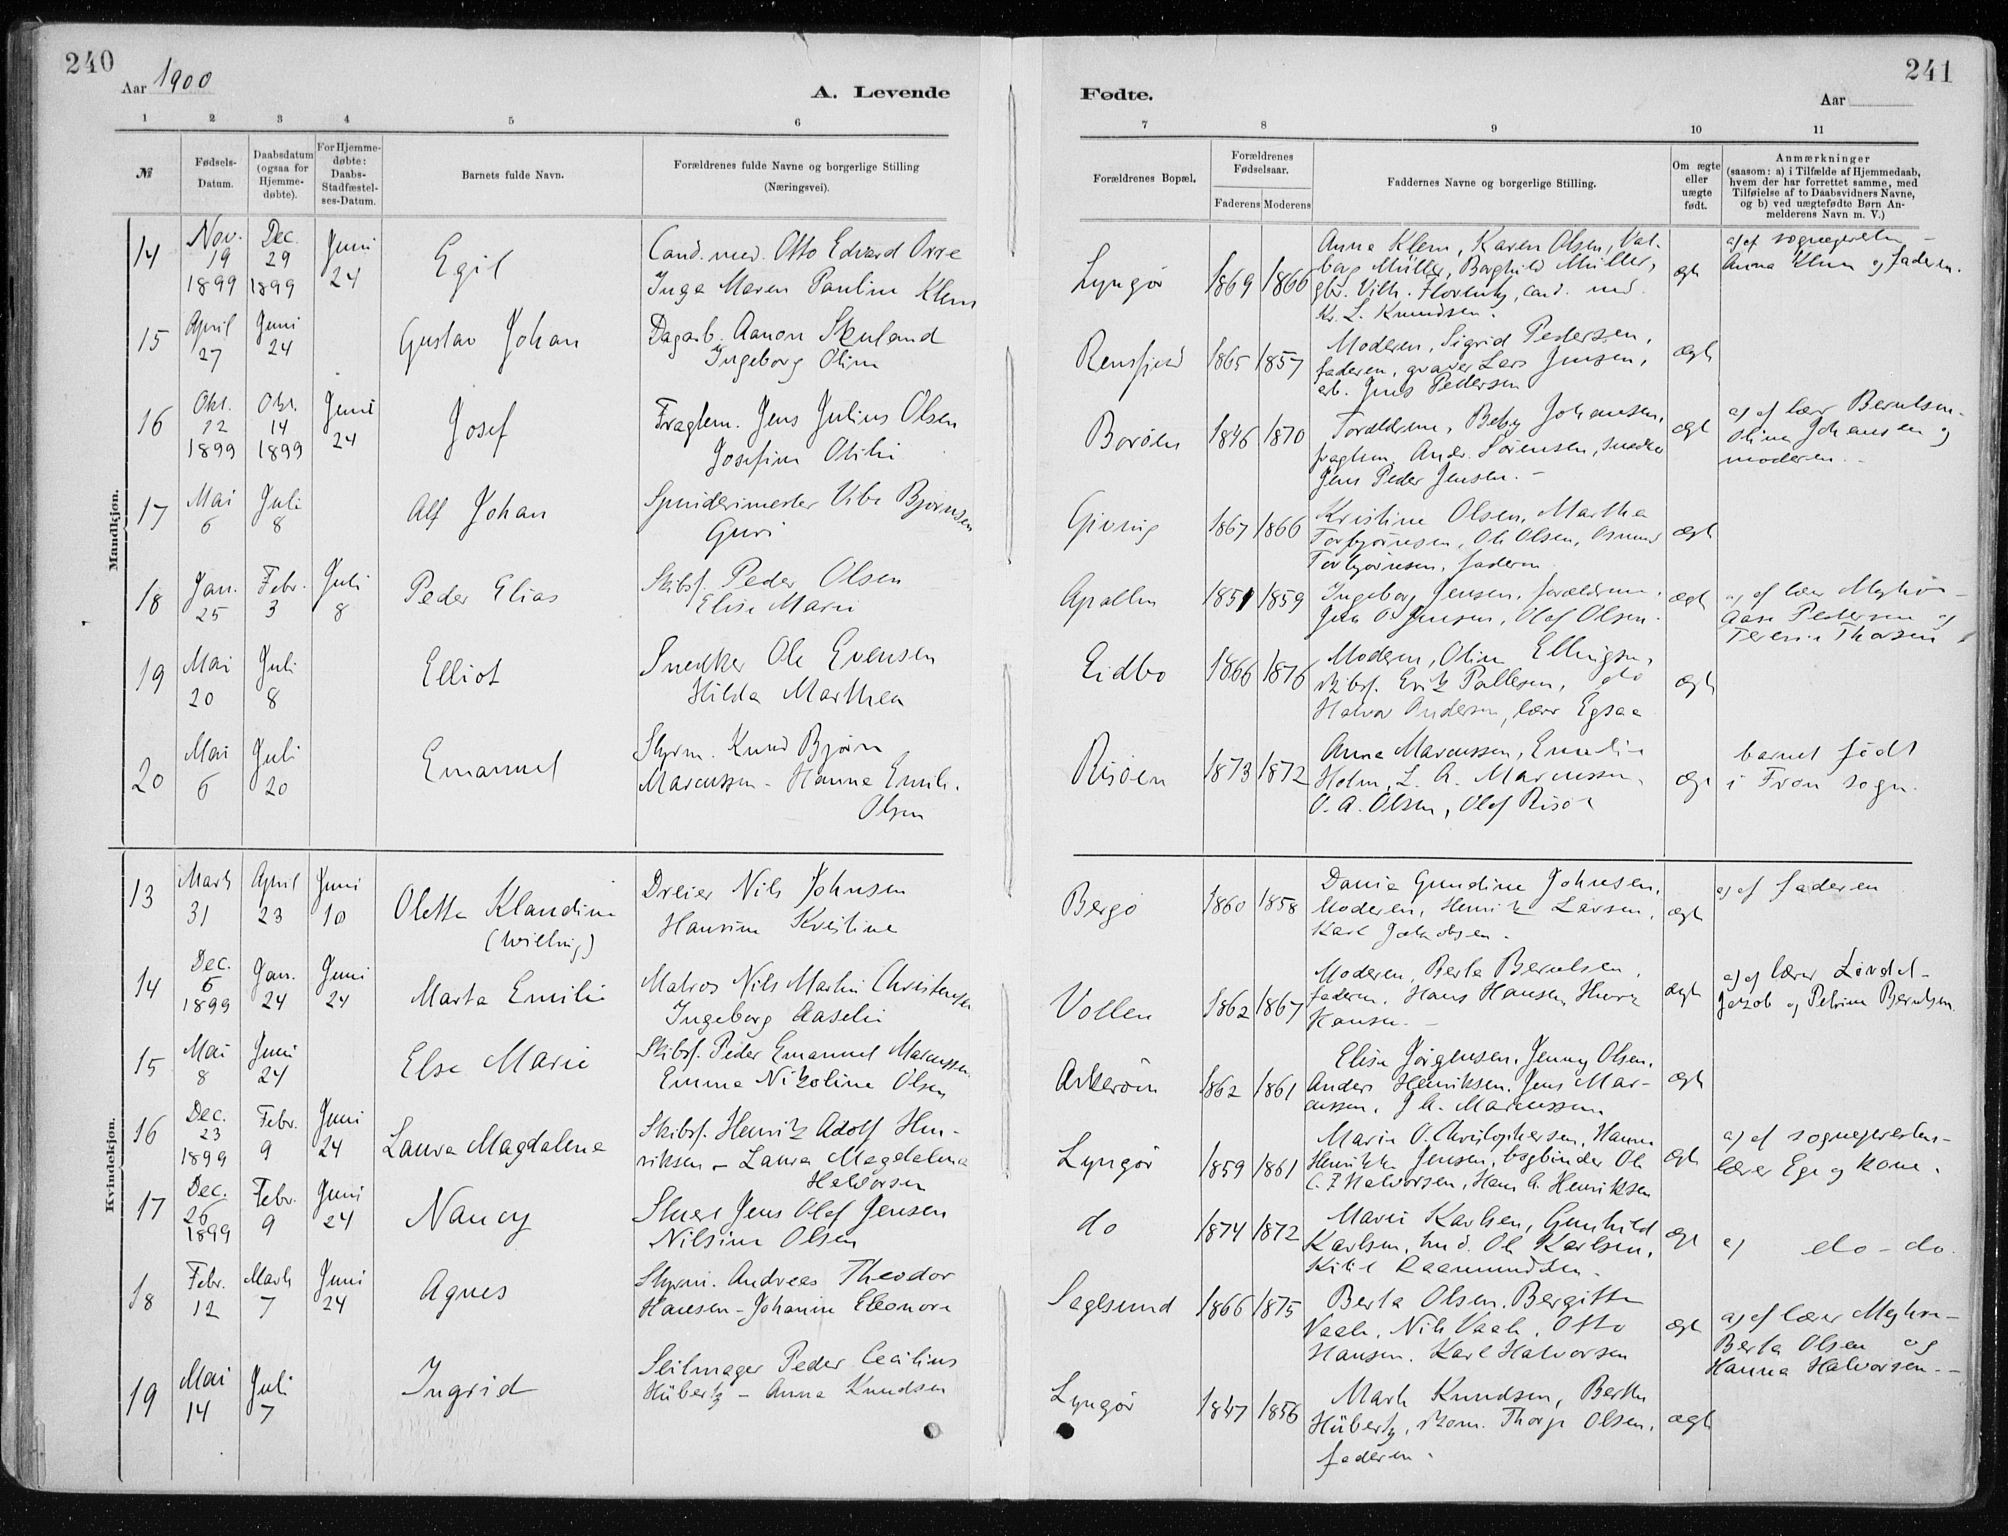 240
Aar 1900
A. Levende
Fødte.
241
Aar
1 2 3 4 5 6
7 8 9 10 11
№
Fødsels-
Datum.
Daabsdatum
(ogsaa for
Hjemme-
døbte).
For Hjemme-
døbte:
Daabs-
Stadfæstel-
ses-Datum.
Barnets fulde Navn.
Forældrenes fulde Navne og borgerlige Stilling
(Næringsvei).
Forældrenes Bopæl.
Forældrenes
Fødselsaar.
Faderens Moderens
Faddernes Navne og borgerlige Stilling.
Om ægte
eller
uægte
født.
Anmærkninger
(saasom: a) i Tilfælde af Hjemmedaab,
hvem der har forrettet samme, med
Tilføielse af to Daabsvidners Navne,
og b) ved uægtefødte Børn An-
melderens Navn m. V.)
Mandkjøn.
14
Nov.
19
1899
Dec.
29
1899
Juni
24
Egil
Cand. med. Otto Edvard Orre
Inga Maren Pauline Klem
Lyngør
1869 1866
Anna Klem, Karen Olsen, Val-
borg Müller, Borghild Müller,
Vilh. cand. med.
Kr. L. Knudsen.
ægt
a) af
Anna Klem og faderen.
15
April
27
Juni
24
Gustav Johan
Dagarb. Aanon Skuland
Ingeborg Oline
1865 1857
Moderen, Sigrid Pedersen,
faderen, graver Lars Jensen,
arb. Jens Pedersen
ægt
16
Okt.
12
1899
Okt.
14
1899
Juni
24
Josef
Fragtem. Jens Julius Olsen
Josefine Otilie
Borøen
1846 1870
Forældrene, Betsy Johansen,
fragtem. Andr. Sørensen, snedker
Jens Peder Jensen. -
ægt
a) af lær Berntsen-
Oline Johansen og
moderen. -
17
Mai
6
Juli
8
Alf Johan
Spinderimester Bjørnsen
Guri
Giving
1867 1866
Kristine Olsen, Martha
Torbjørnsen, Ole Olsen, Osmund
Torbjørnsen, faderen
ægt
18
Jan.
25
Febr.
3
Juli
8
Peder Elias
Skibsf. Peder Olsen
Elise Marie
1851 1859
Ingeborg Jensen, forældrene,
Jens O. Jensen, Olaf Olsen.
ægt
a) af lær
Aase Pedersen og
Teresie Thorsen
19
Mai
20
Juli
8
Elliot
Snedker Ole Evensen
Hilda Marthea
Eidbo
1866 1876
Moderen, Oline Ellingsen,
skibsf. Erik Pallesen, do
Halvor Andersen, lær Egsaa
ægt
20
Mai
6
Juli
20
Emanuel
Styrm. Knud Bjørn
Marcussen - Hanna Emilie
Olsen
Risøen
1873 1872
Anna Marcussen, Emelie
Holm, L. A. Marcussen,
O. A. Olsen, Olaf Risø
ægt
barnet født
i Fron sogn.
Kvindekjøn.
13
Marts
31
April
23
Juni
10
Oletta Klaudine
Dreier Nils Johnsen
Hansine Kristine
Bergø
1860 1858
Gundine Johnsen,
Moderen, Henrik Larsen,
Karl Jakobsen.
ægt
a) af faderen
14
Dec.
6
1899
Jan.
24
Juni
24
Marta Emilie
Matros Nils Martin Christensen
Ingeborg Aaselie
Vollen
1862 1867
Moderen, Berta Berntsen,
faderen, Hans Hansen,
Hansen. -
ægt
a) af lærer Løvdal-
Jakob og Petrine Berntsen
15
Mai
8
Juni
24
Else Marie
Skibsf. Peder Emanuel Marcussen
Emma Nikoline Olsen
Askerøen
1862 1861
Elise Jørgensen, Jenny Olsen,
Anders Henriksen, Jens Mar-
cussen, J. A. Marcussen.
ægt
16
Dec.
23
1899
Febr.
9
Juni
24
Laura Magdalena
Skibsf. Henrik Adolf Hen-
riksen - Laura Magdalena
Halvorsen
Lyngør
1859 1861
Marie O. Christophersen, Hanna
Henrikke Jensen, bogbinder Ole
C. F. Halvorsen, Hans A. Henriksen
ægt
a) af
lærer Ege og kone.
17
Dec.
26
1899
Febr.
9
Juni
24
Nancy
Jens Olaf Jensen
Nilsine Olsen
do
1874 1872
Marie Karlsen, Gunhild
Karlsen, Ole Karlsen,
Raamundsen.
ægt
a) do - do.
18
Febr.
12
Marts
7
Juni
24
Agnes
Styrm. Andreas Theodor
Hansen - Johanne Eleonora
Saglsund
1866 1875
Berta Olsen, Bergitte
Vaale, Nils Vaale, Otto
Hansen, Karl Halvorsen
ægt
a) af lærer
Berta Olsen og
Hanna Halvorsen. -
19
Mai
14
Juli
7
Ingrid
Seilmager Peder Cecilius
Hübertz - Anna Knudsen
Lyngør
1847 1856
Knudsen, Berthe
Hübertz, Olsen,
faderen.
ægt